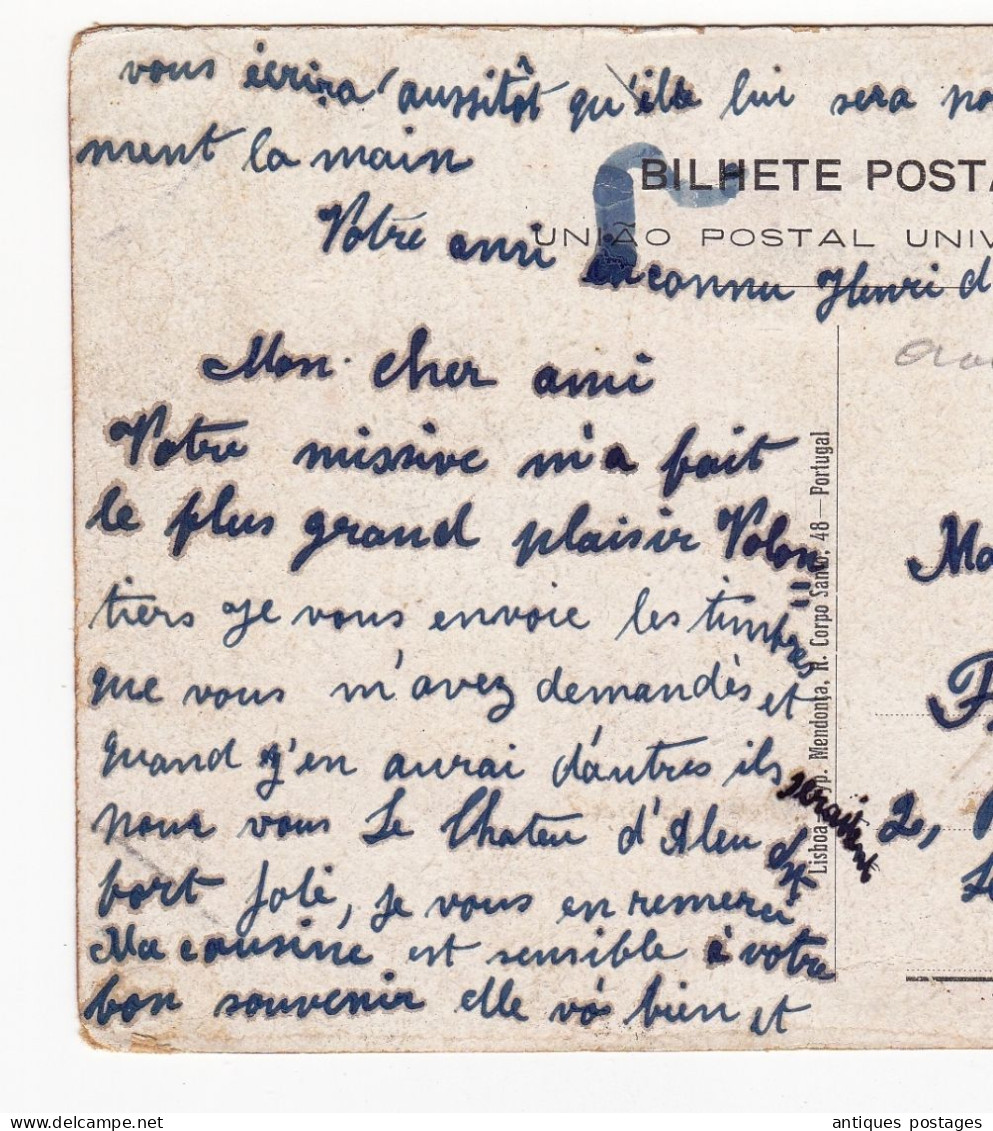 vous écrira aussitôt qu'elle lui sera po
ment la main
BILHETE POSTA
Votre ami inconnu Henri d
UNIÃO POSTAL UNIV
Mon cher ami
Votre missive m'a fait
le plus grand plaisir Volon
tiers je vous envoie les timbres
que vous m'avez demandés et
quand j'en aurai d'autres ils seraient
pour vous Le Chateu d'Aleu est
fort joli, je vous en remerci
Ma cousine est sensible à votre
bon souvenir elle vas bien et
Lisboa Typ. Mendonça, R. Corpo Santo, 48 — Portugal
Ma
2,
antiques postages